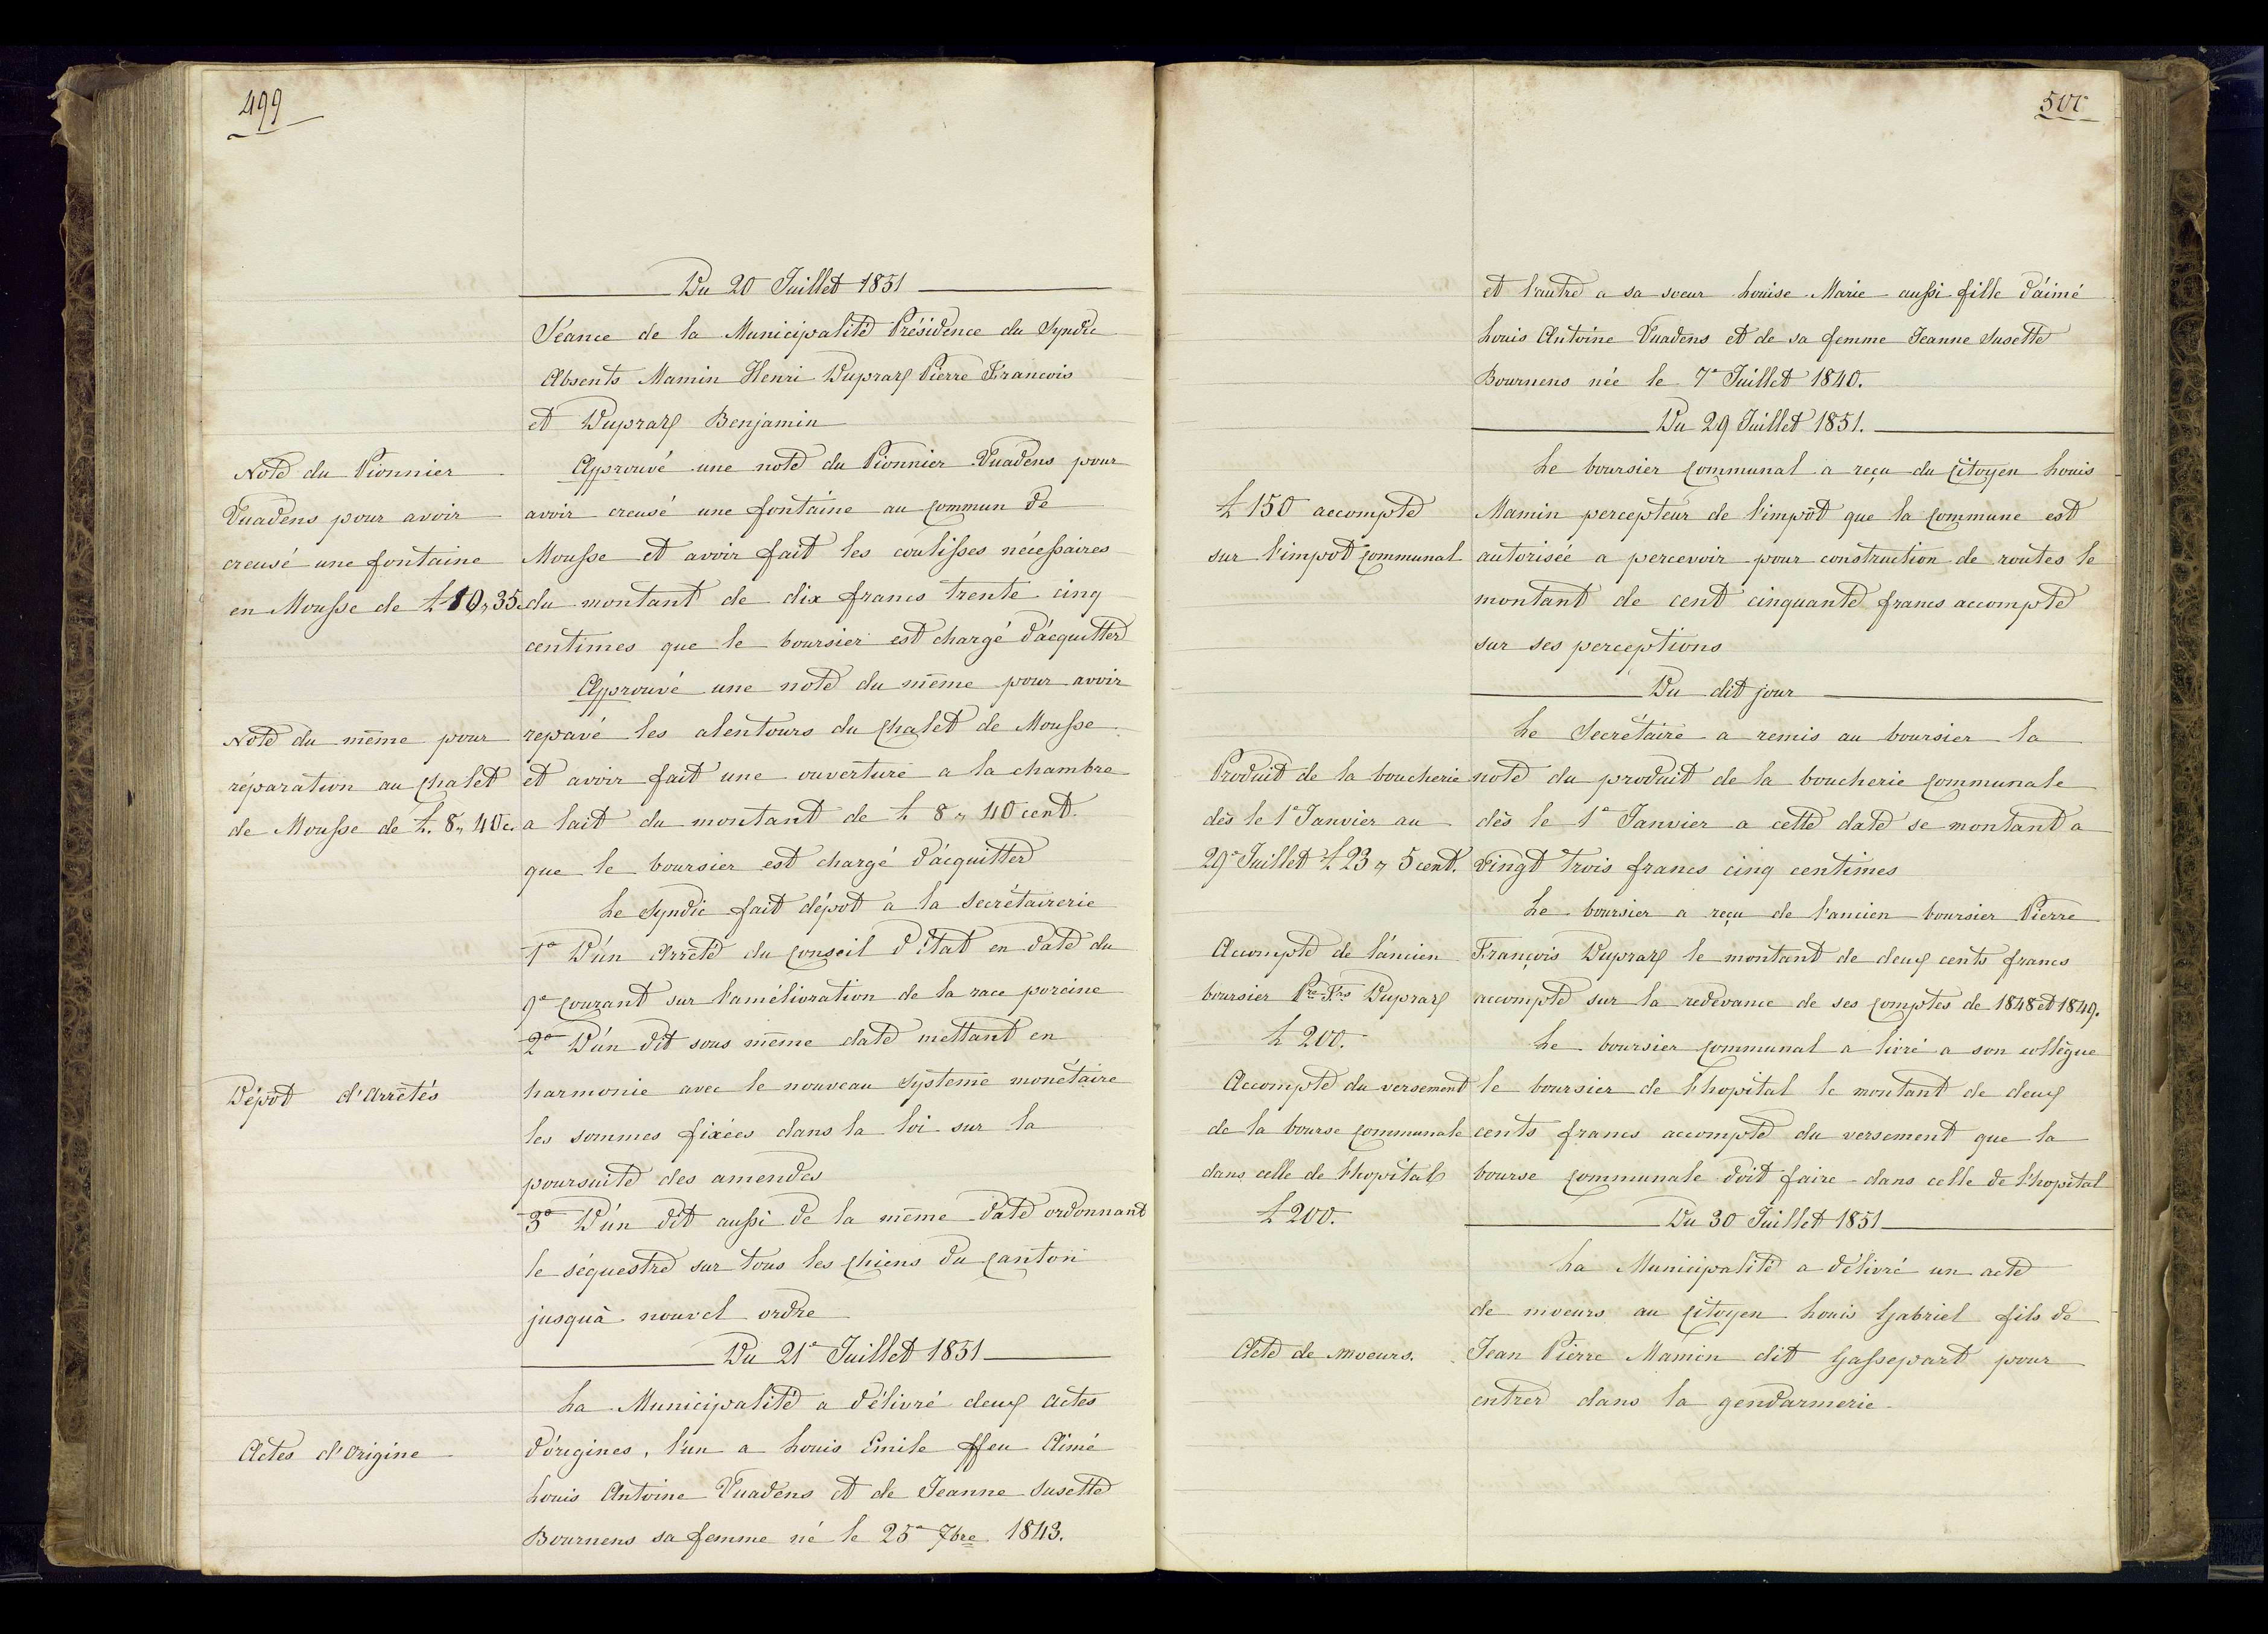 499
Du 20 Juillet 1851
Séance de la Municipalité Présidence du Syndic
Absents Mamin Henri Dupraz Pierre Francois
et Dupraz Benjamin
Note du Pionnier
Vuadens pour avoir
creusé une fontaine
en Mousse de £ 10,, 35c
Approuvé une note du Pionnier Vuadens pour
avoir creusé une fontaine au Commun de
Mousse et avoir fait les coulisses nécessaires
du montant de dix francs trente cinq
centimes que le boursier est chargé d'acquitter
Approuvé une note du même pour avoir
Note du même pour
réparation au Chalet
de Mousse de £. 8,, 40c.
repavé les alentours du Chalet de Mousse
et avoir fait une ouverture a la chambre
a lait du montant de £ 8,, 40 cent.
que le boursier est chargé d'acquitter
Le Syndic fait dépot a la secrétairerie
1° D'un Arrêté du Conseil d'état en date du
9e Courant sur l'amélioration de la race porcine
2° D'un dit sous même date mettant en
Dépôt d'Arrêtés
harmonie avec le nouveau système monétaire
les sommes fixées dans la loi sur la
poursuite des amendes
3° D'un dit aussi de la même date ordonnant
le séquestre sur tous les Chiens du Canton
jusqu'à nouvel ordre
Du 21e Juillet 1851
La Municipalité a délivré deux Actes
Actes d'Origine
d'origines, l'un a Louis Emile ffeu Aimé
Louis Antoine Vuadens et de Jeanne Susette
Bournens sa femme né le 25e 7bre 1843.
500
et l'autre a sa soeur Louise Marie aussi fille d'aimé
Louis Antoine Vuadens et de sa femme Jeanne Susette
Bournens née le 7e Juillet 1840.
Du 29 Juillet 1851.
Le boursier Communal a reçu du Citoyen Louis
£ 150 accompte
sur l'impot Communal
Mamin percepteur de l'impôt que la Commune est
autorisée a percevoir pour construction de routes le
montant de cent cinquante francs accompte
sur ses perceptions
Du dit jour
Le Secrétaire a remis au boursier la
Produit de la boucherie
dès le 1e Janvier au
29e Juillet £ 23,, 5 cent.
note du produit de la boucherie Communale
dès le 1e Janvier a cette date se montant a
vingt trois francs cinq centimes
Le boursier a reçu de l'ancien boursier Pierre
Accompte de l'ancien
boursier Pre Frs Dupraz
£ 200.
François Dupraz le montant de deux cents francs
accompte sur la redevance de ses Comptes de 1848 et 1849.
Le boursier Communal a livré a son collègue
Accompte du versement
de la bourse Communale
dans celle de l'hopital
£ 200.
le boursier de l'hopital le montant de deux
cents francs accompte du versement que la
bourse Communale doit faire dans celle de l'hopital
Du 30 Juillet 1851
La Municipalité a délivré un acte
de moeurs au Citoyen Louis Gabriel fils de
Acte de moeurs.
Jean Pierre Mamin dit Gassepart pour
entrer dans la gendarmerie